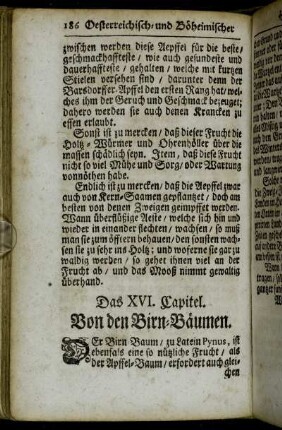 186 Oesterreichisch- und Böheimischer
zwischen werden diese Aepffel für die beste/
geschmackhaffteste / wie auch gesundeste und
dauerhaffteste / gehalten / welche mit kurtzen
Stielen versehen sind / darunter denn der
Barsdorffer-Apffel den ersten Rang hat/ wel-
ches ihm der Geruch und Geschmack bezeuget;
dahero werden sie auch denen Krancken zu
essen erlaubt.
Sonst ist zu mercken / daß dieser Frucht die
Holtz - Würmer und Ohrenhöller über die
massen schädlich seyn. Item, daß diese Frucht
nicht so viel Mühe und Sorg / oder Wartung
vonnöthen habe.
Endlich ist zu mercken/ daß die Aepffel zwar
auch von Kern-Saamen gepflantzet / doch am
besten von denen Zweigen geimpffet werden.
Wann überflüßige Aeste / welche sich hin und
wieder in einander flechten / wachsen / so muß
man sie zum öfftern behauen/ den sonsten wach-
sen sie zu sehr ins Holtz ; und woferne sie gar zu
waldig werden / so gehet ihnen viel an der
Frucht ab / und das Mooß nimmt gewaltig
überhand.
Das XVI. Capitel.
Von den Birn-Bäumen.
DEr Birn Baum / zu Latein Pynus, ist
ebenfals eine so nützliche Frucht / als
der Apffel-Baum / erfordert auch glei-
chen